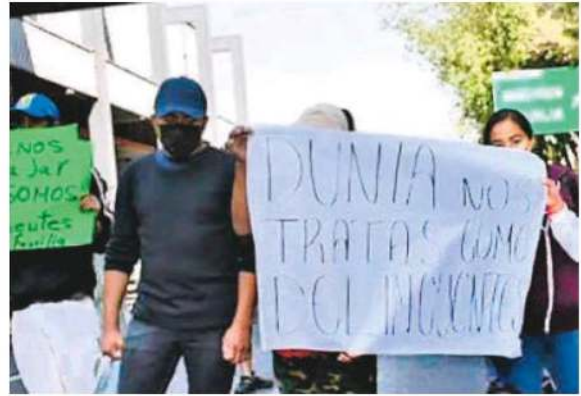 NOS
a Jar
SOMOS
Familia
DUNIA NOS
TRATAS COMO
DELINCUENTES